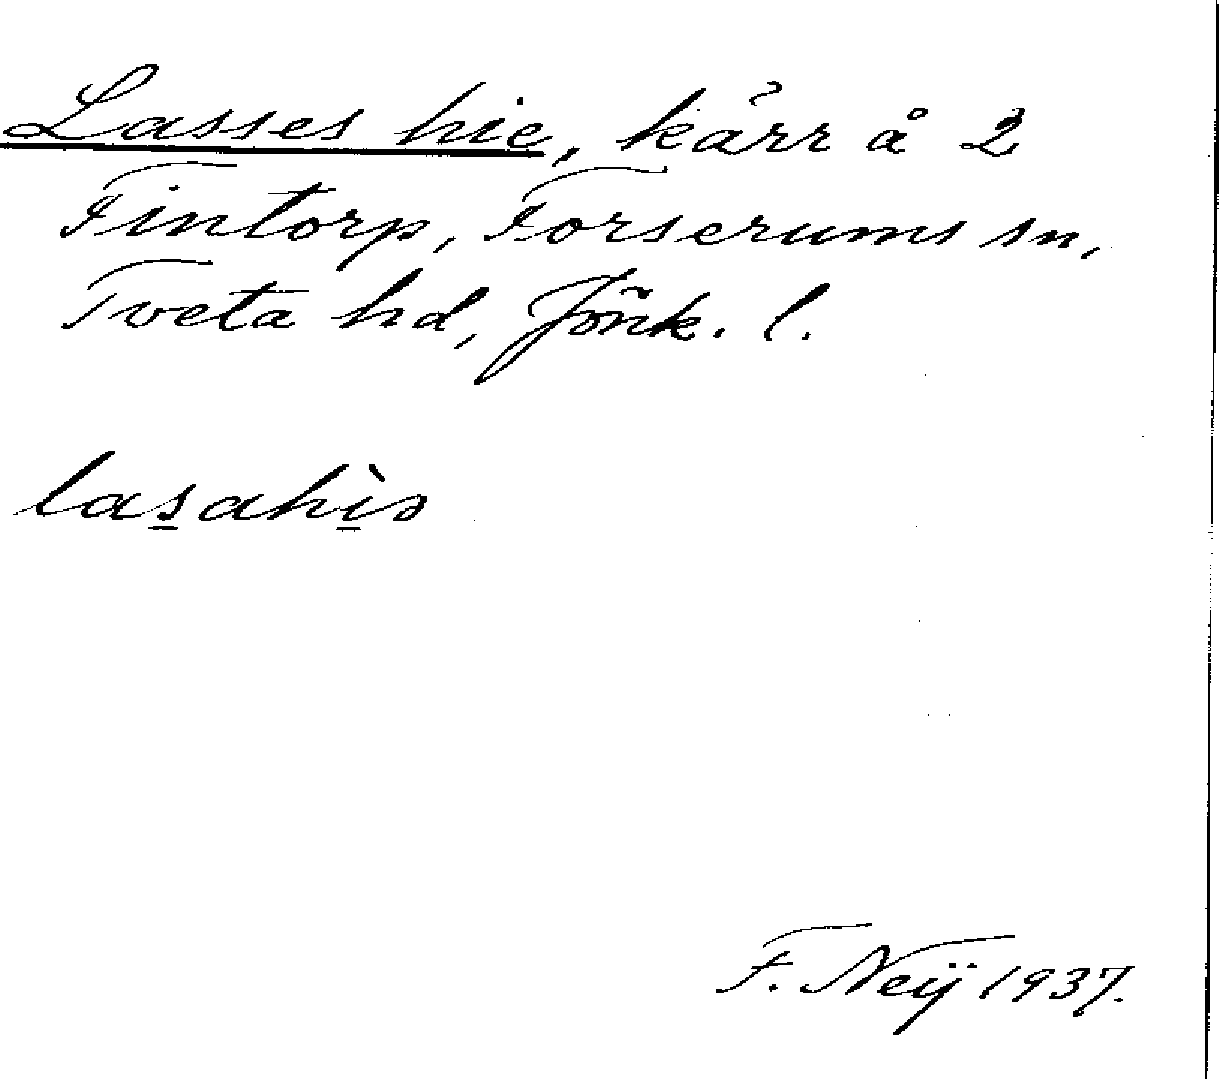 Lasses hie, kärr å 2
Fintorp, Forserums sn,
Tveta hd, Jönk. l.
lasahìs
F. Neij 1937.